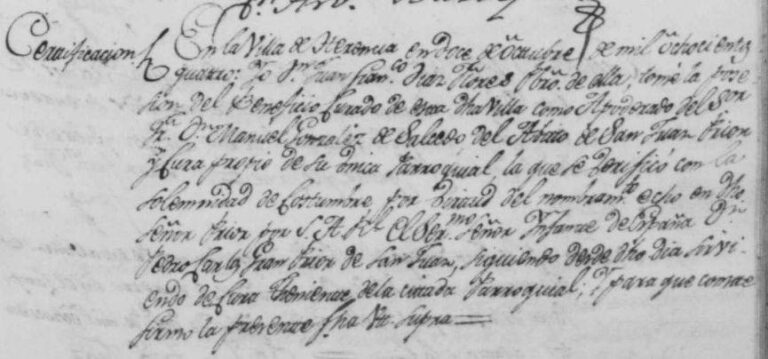 Certificacion En la Villa de Herencia en doce de Octubre, de mil ochocientos
quatro: Yo Dn. Juan Franco. Diaz Flores Pbro. de ella, tomé la pose-
sion del Beneficio Curado de esta dha Villa como Apoderado del Sor
Fr. Dn. Manuel Gonzalez de Salcedo del Abito de San Juan Prior
y Cura propio de su única Parroquial, la que se berificó con la
solemnidad de Costumbre por birtud del nombramto. echo en dho
señor Prior por S. A. R. El Sermo. señor Infante de España Dn
Pedro Carlos Gran Prior de San Juan, siguiendo desde dho dia sirvi-
endo de Cura Theniente de la citada Parroquial; Y para que conste
firmo la presente fha Ut supra=